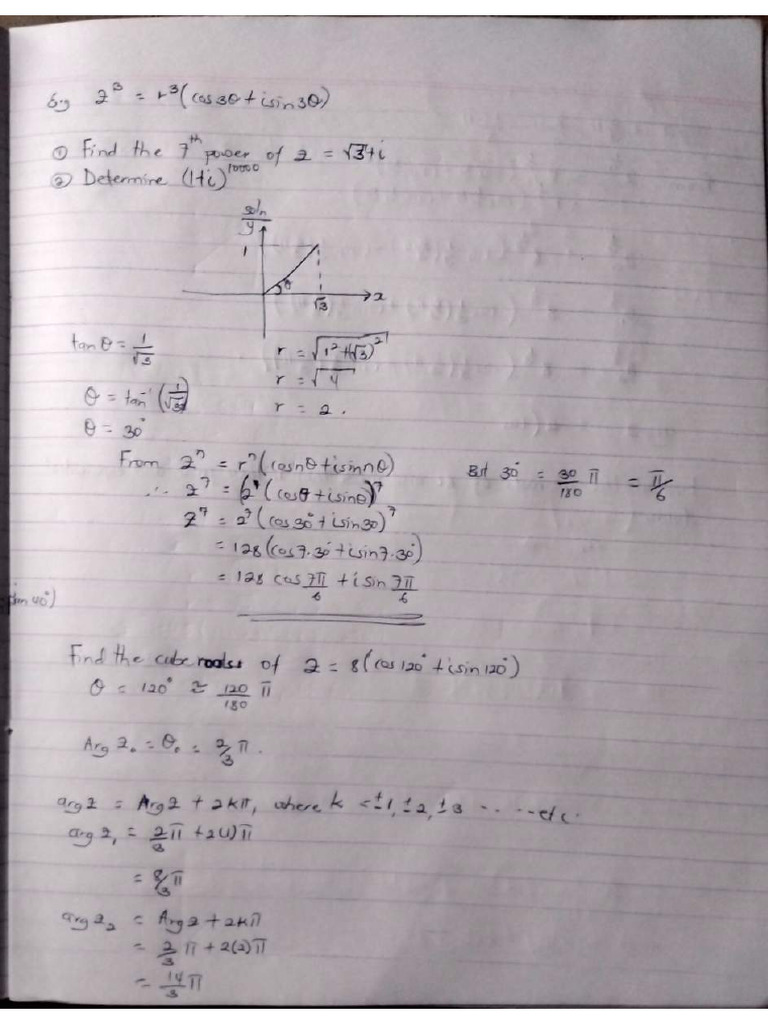 eg z³ = r³(cos3θ + isin3θ)
① Find the 7th power of z = √3+i
② Determine (1+i)¹⁰⁰⁰⁰
soln
y
1
θ
√3 x
tanθ = 1/√3 r = √(1²+(√3)²)
r = √4
θ = tan⁻¹(1/√3) r = 2.
θ = 30°
From zⁿ = rⁿ(cosnθ+isinnθ) But 30° = 30/180 π = π/6
∴ z⁷ = (2⁷(cosθ+isinθ)⁷
z⁷ = 2⁷(cos30°+isin30)⁷
= 128(cos7·30°+isin7·30°)
= 128 cos 7π/6 + i sin 7π/6
40°)
Find the cube roots of z = 8(cos120°+isin120°)
θ = 120° ≈ 120/180 π
Arg z₀ = θ₀ = 2/3 π.
arg z = Arg z + 2kπ, where k = ±1, ±2, ±3 ..... etc.
arg z₁ = 2/3 π + 2(1)π
= 8/3 π
arg z₂ = Arg z + 2kπ
= 2/3 π + 2(2)π
= 14/3 π